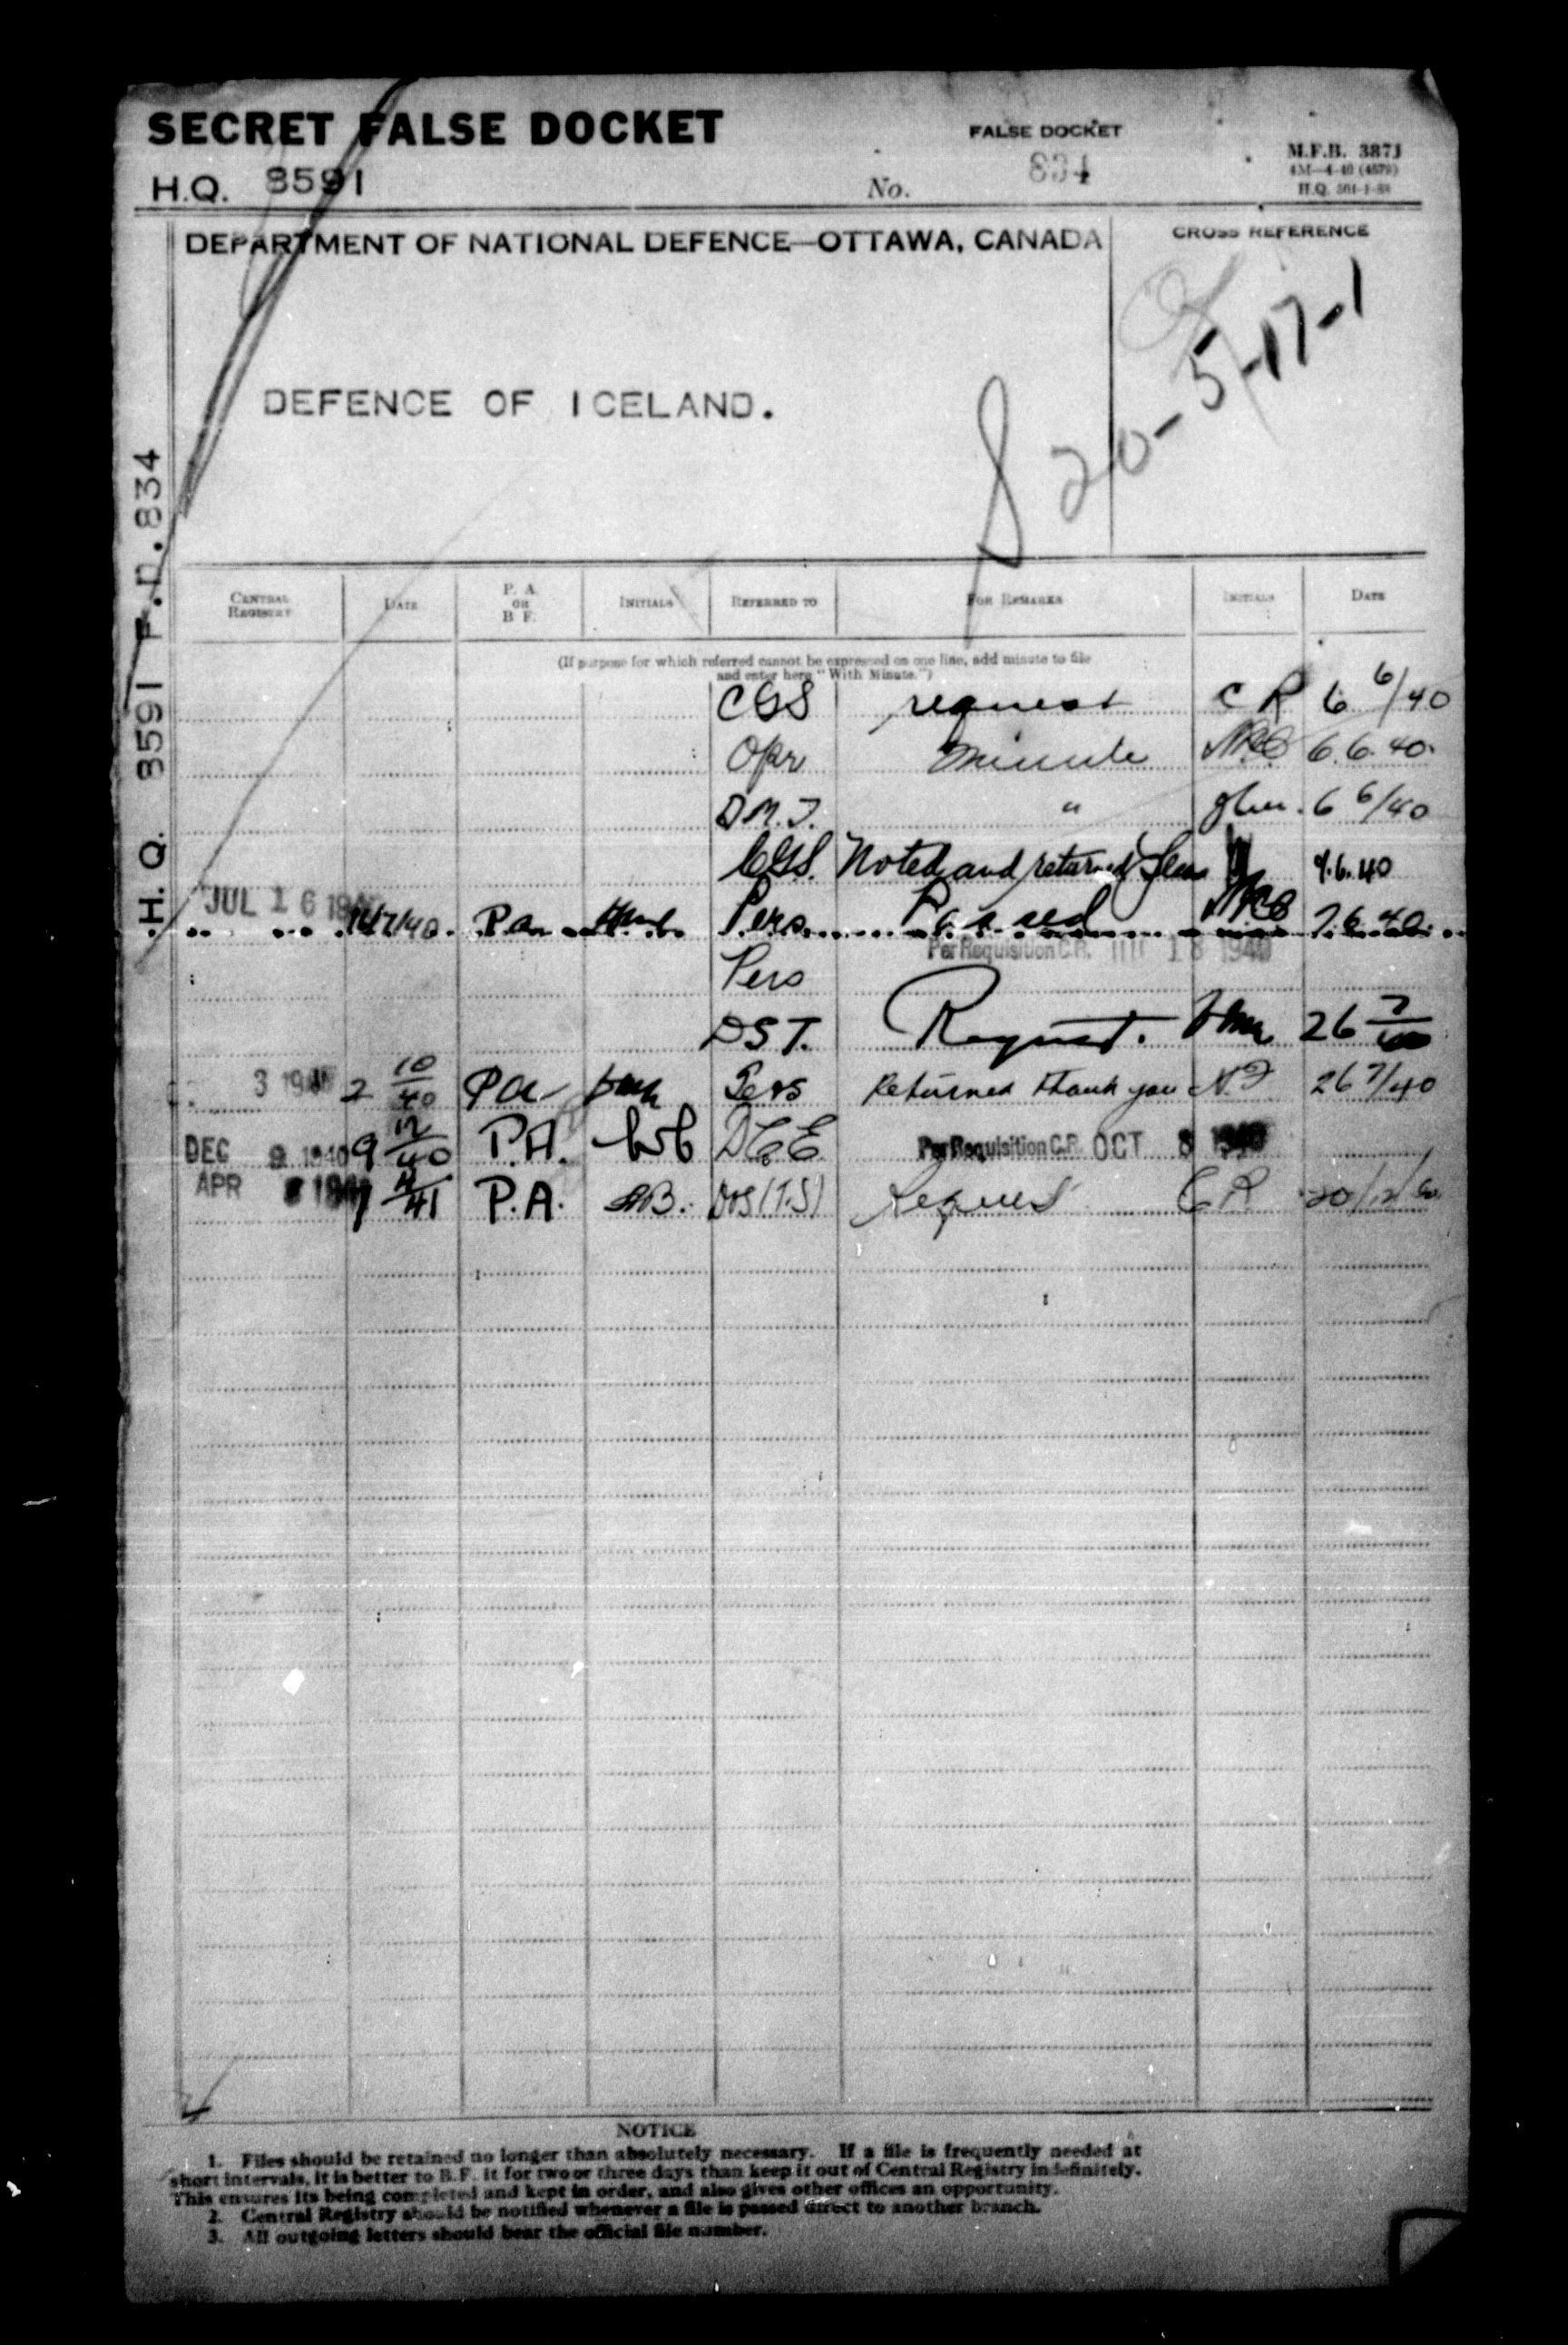 SECRET FALSE DOCKET
FALSE DOCKET
M.F.B. 387J
4M—4-40 (4579)
H.Q. 8591
No. 834
H.Q.
DEPARTMENT OF NATIONAL DEFENCE—OTTAWA, CANADA
CROSS REFERENCE
DEFENCE OF ICELAND.
20-5-17-1
H.Q. 8591 F.D. 834
CENTRAL REGISTRY DATE P. A. OR B F. INITIALS REFERRED TO FOR REMARKS INITIALS DATE
(If purpose for which referred cannot be expressed on one line, add minute to file
and enter here "With Minute.")
CGS request CR 6 6/40
Opr minute 6.6.40.
D.M.T. " 6 6/40
CGS. Noted and returned 7.6.40
JUL 16 16/7/40 P.a. Pers. Passed 7.6.40
Per Requisition C.R. 18 1940
Pers
DST. Request. 26 7/40
3 1940 2 10/40 Pa Pers Returned Thank you N.F 26 7/40
DEC 9 1940 9 12/40 P.A. Per Requisition C.R. OCT 8 1940
APR 8 1941 4/41 P.A. Request CR
NOTICE
1. Files should be retained no longer than absolutely necessary. If a file is frequently needed at
short intervals, it is better to B.F. it for two or three days than keep it out of Central Registry indefinitely.
This ensures its being completed and kept in order, and also gives other offices an opportunity.
2. Central Registry should be notified whenever a file is passed direct to another branch.
3. All outgoing letters should bear the official file number.